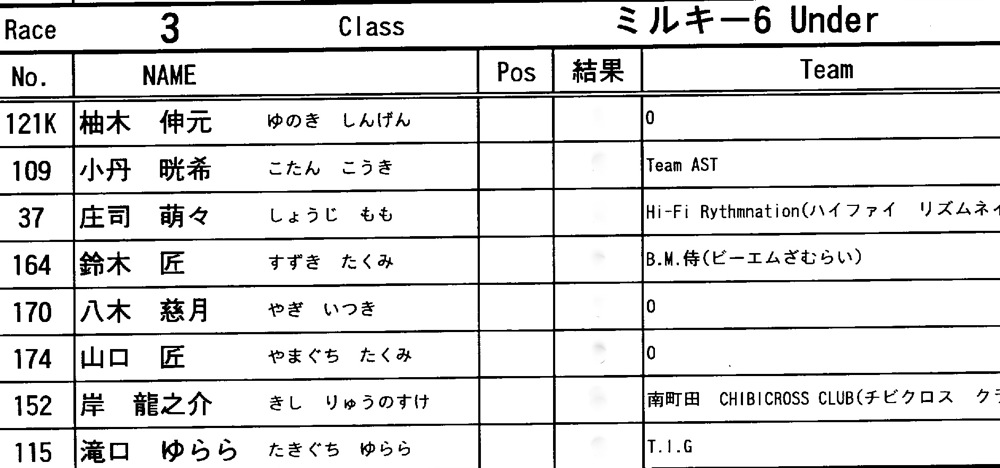 Race 3 Class ミルキー6 Under
No. NAME Pos 結果 Team
121K 柚木 伸元 ゆのき しんげん 0
109 小丹 晄希 こたん こうき Team AST
37 庄司 萌々 しょうじ もも Hi-Fi Rythmnation(ハイファイ リズムネイ
164 鈴木 匠 すずき たくみ B.M.侍(ビーエムざむらい)
170 八木 慈月 やぎ いつき 0
174 山口 匠 やまぐち たくみ 0
152 岸 龍之介 きし りゅうのすけ 南町田 CHIBICROSS CLUB(チビクロス クラ
115 滝口 ゆらら たきぐち ゆらら T.I.G